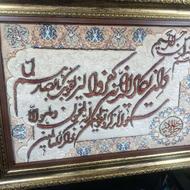 بسم الله الرحمن الرحيم
وان يكاد الذين كفروا ليزلقونك بابصارهم
لما سمعوا الذكر ويقولون انه لمجنون وما هو الا
ذكر للعالمين